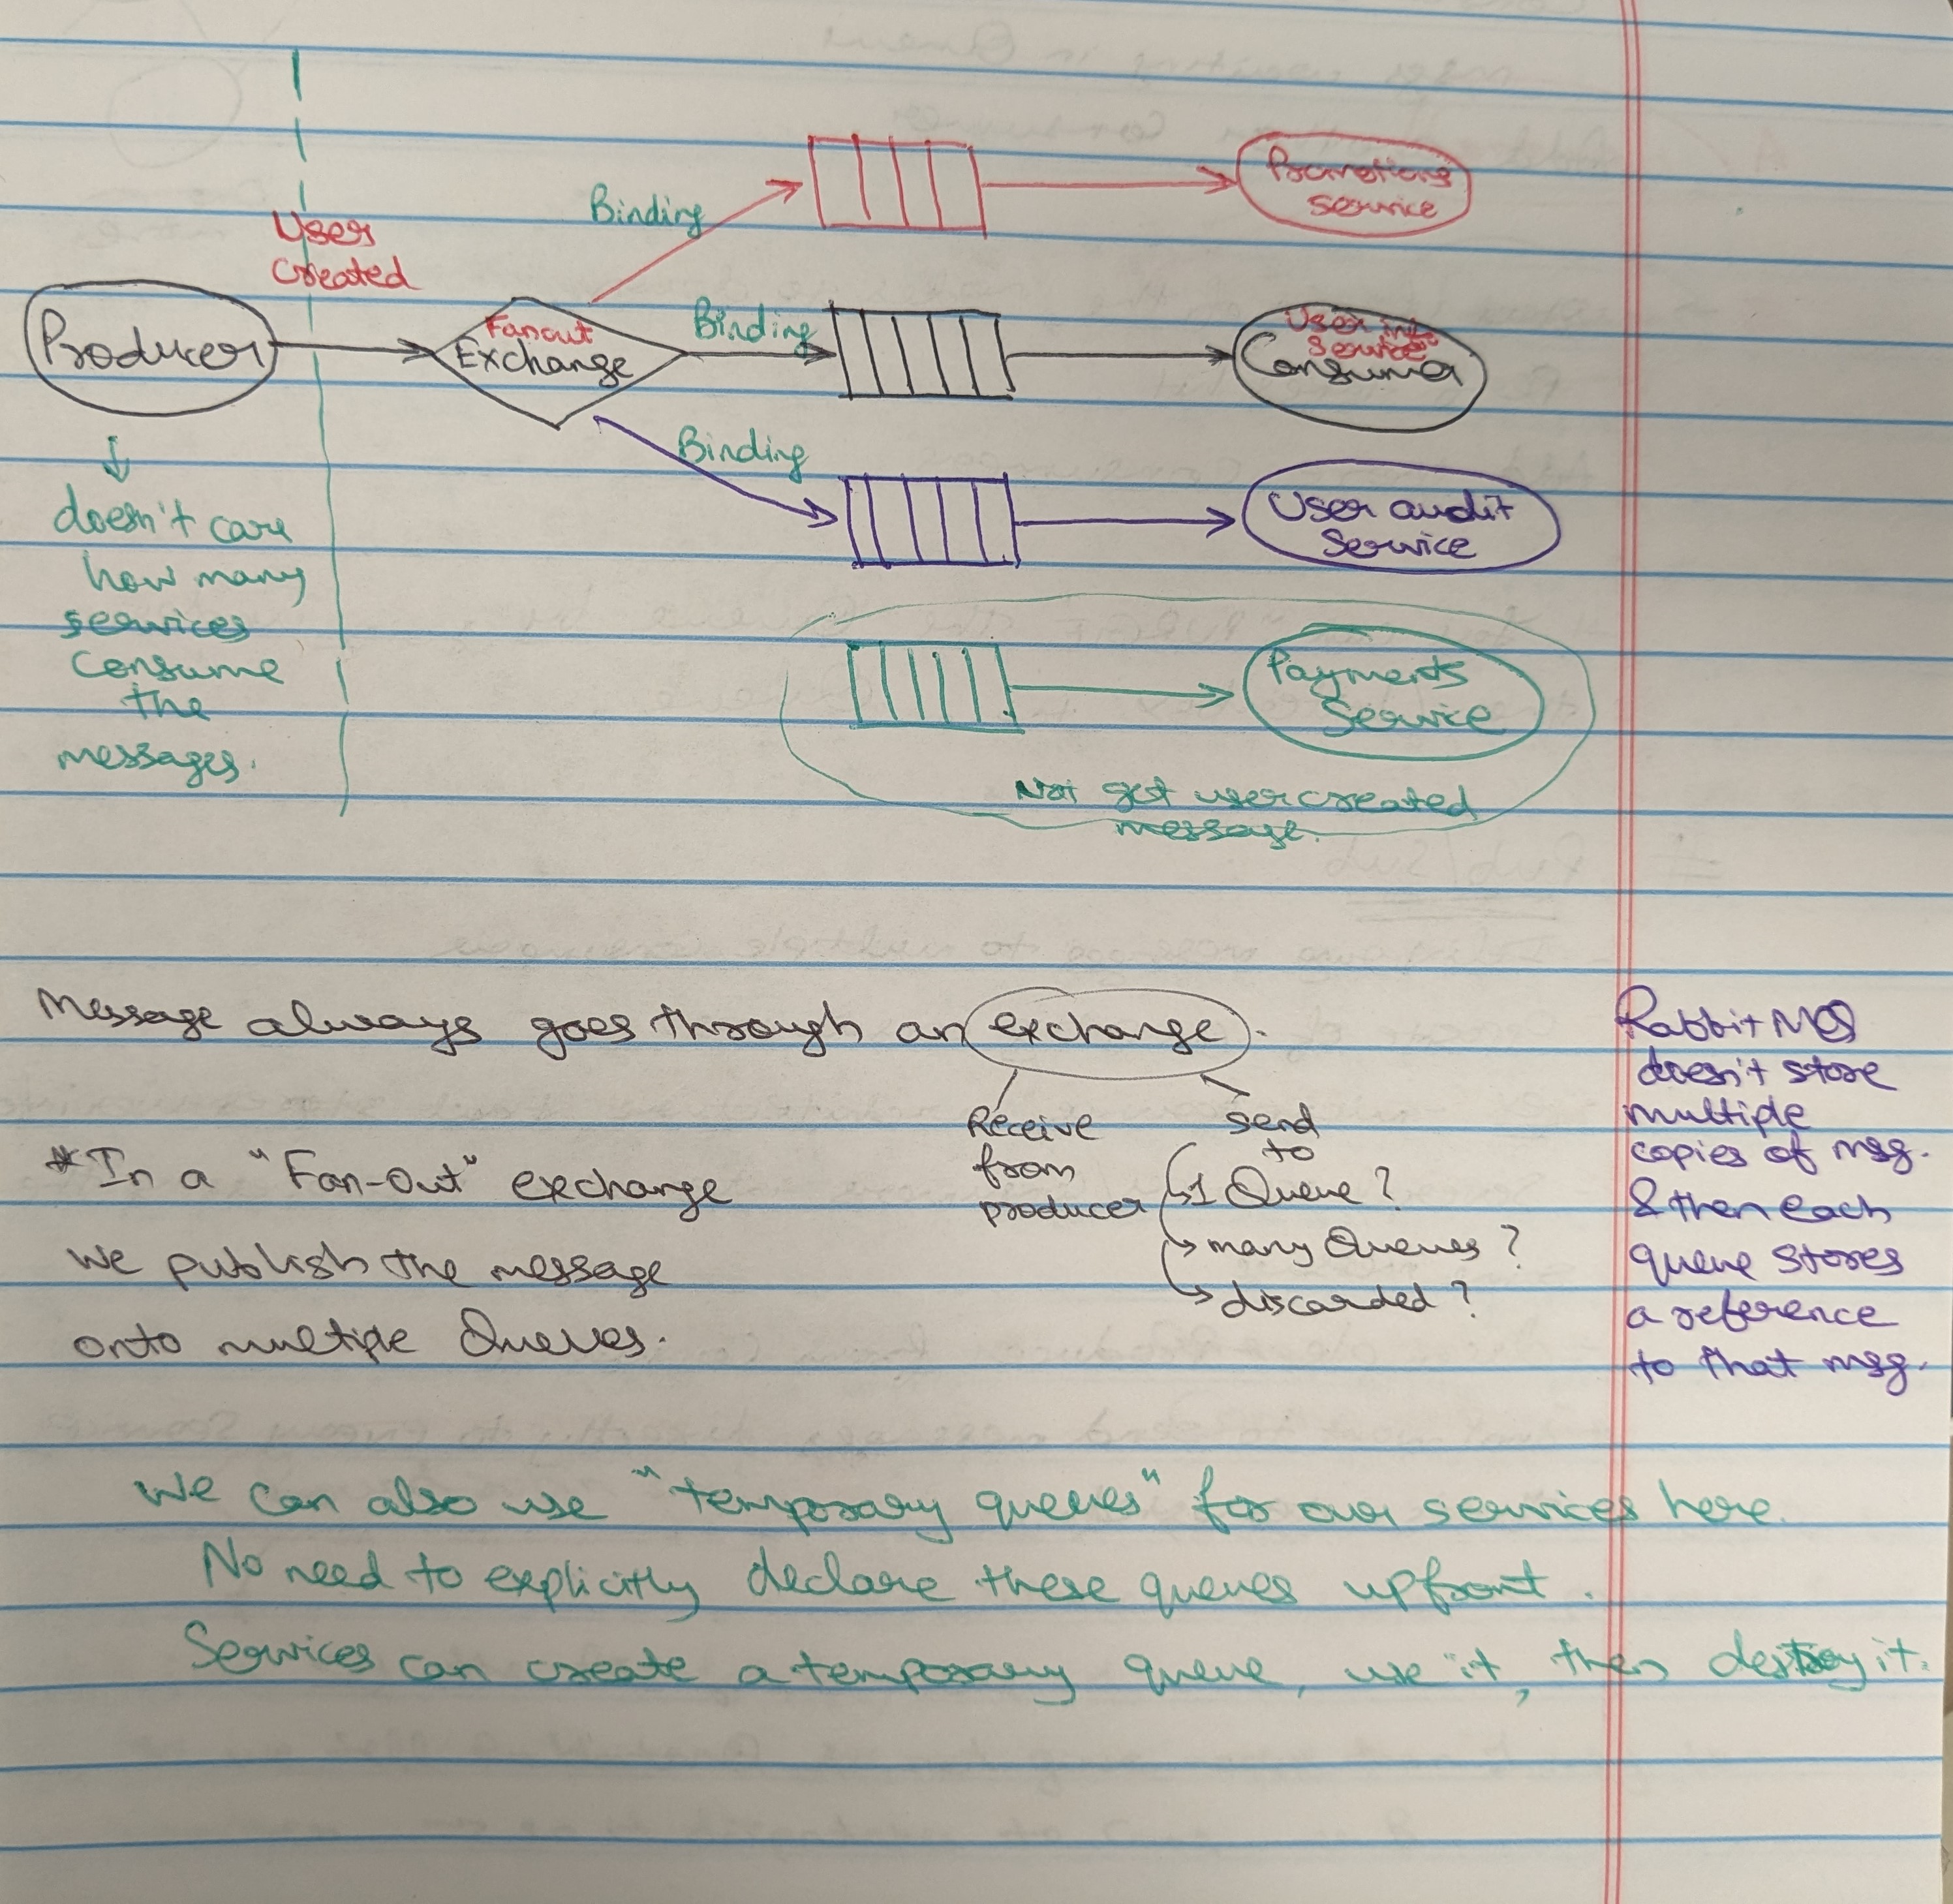 User
Created
Producer
Fanout
Exchange
Binding
Binding
Binding
Promotions
service
User info
Service
Consumer
User audit
Service
Payments
Service
Not get user created
message.
↓
doesn't care
how many
services
consume
the
messages.
Message always goes through an exchange.
Receive
from
producer
send
to
1 Queue?
many Queues?
discarded?
*In a "Fan-Out" exchange
we publish the message
onto multiple Queues.
RabbitMQ
doesn't store
multiple
copies of msg.
& then each
queue stores
a reference
to that msg.
We can also use "temporary queues" for our services here.
No need to explicitly declare these queues upfront.
Services can create a temporary queue, use it, then destroy it.